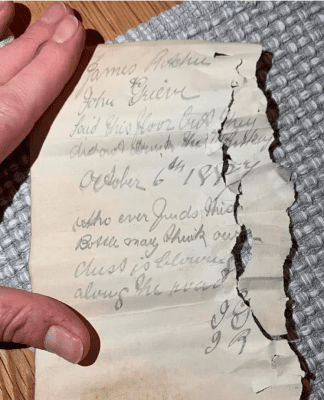 James Ritchie
John Grieve
laid this floor but they
did not drink the whisky
October 6th 1887
who ever finds this
Bottle may think our
dust is blowing
along the road
J G
J R